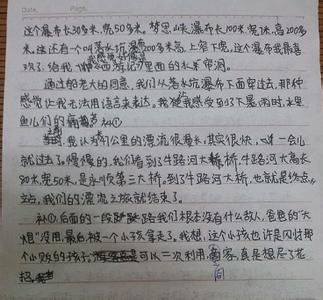 Date.
Page.
这个瀑布长30多米,宽50多米。梦思峡瀑布长100米,宽 米,高200多
米。这还有一个叫落水坑瀑布200多米高,上窄下宽,这个瀑布我最喜
欢了,给我 西游记里面的水帘洞。
我感觉好像是
通过船老大的同意,我们从落水坑瀑布下面穿过去,那种
感觉让我无法用语言来表达,我 感受到了下暴雨时,水里
鱼儿们的 声 补①
我认为 公里的漂流很漫长,其实很快, 一会儿
就过去了。慢慢的,我们看到了牛路河大桥,牛路河大高长
80米,宽50米,是永顺第三大桥。到了牛路河大桥,也就是终点
站,我们的漂流之旅就结束了。
补①后面的一段 路我们根本没有什么敌人,爸爸的“大
炮”没用,最后被一个小孩拿走了。我想,这个小孩也许是闪村那
个小贩的孩子, 可以二次利用, 家,真是想尽了花
招